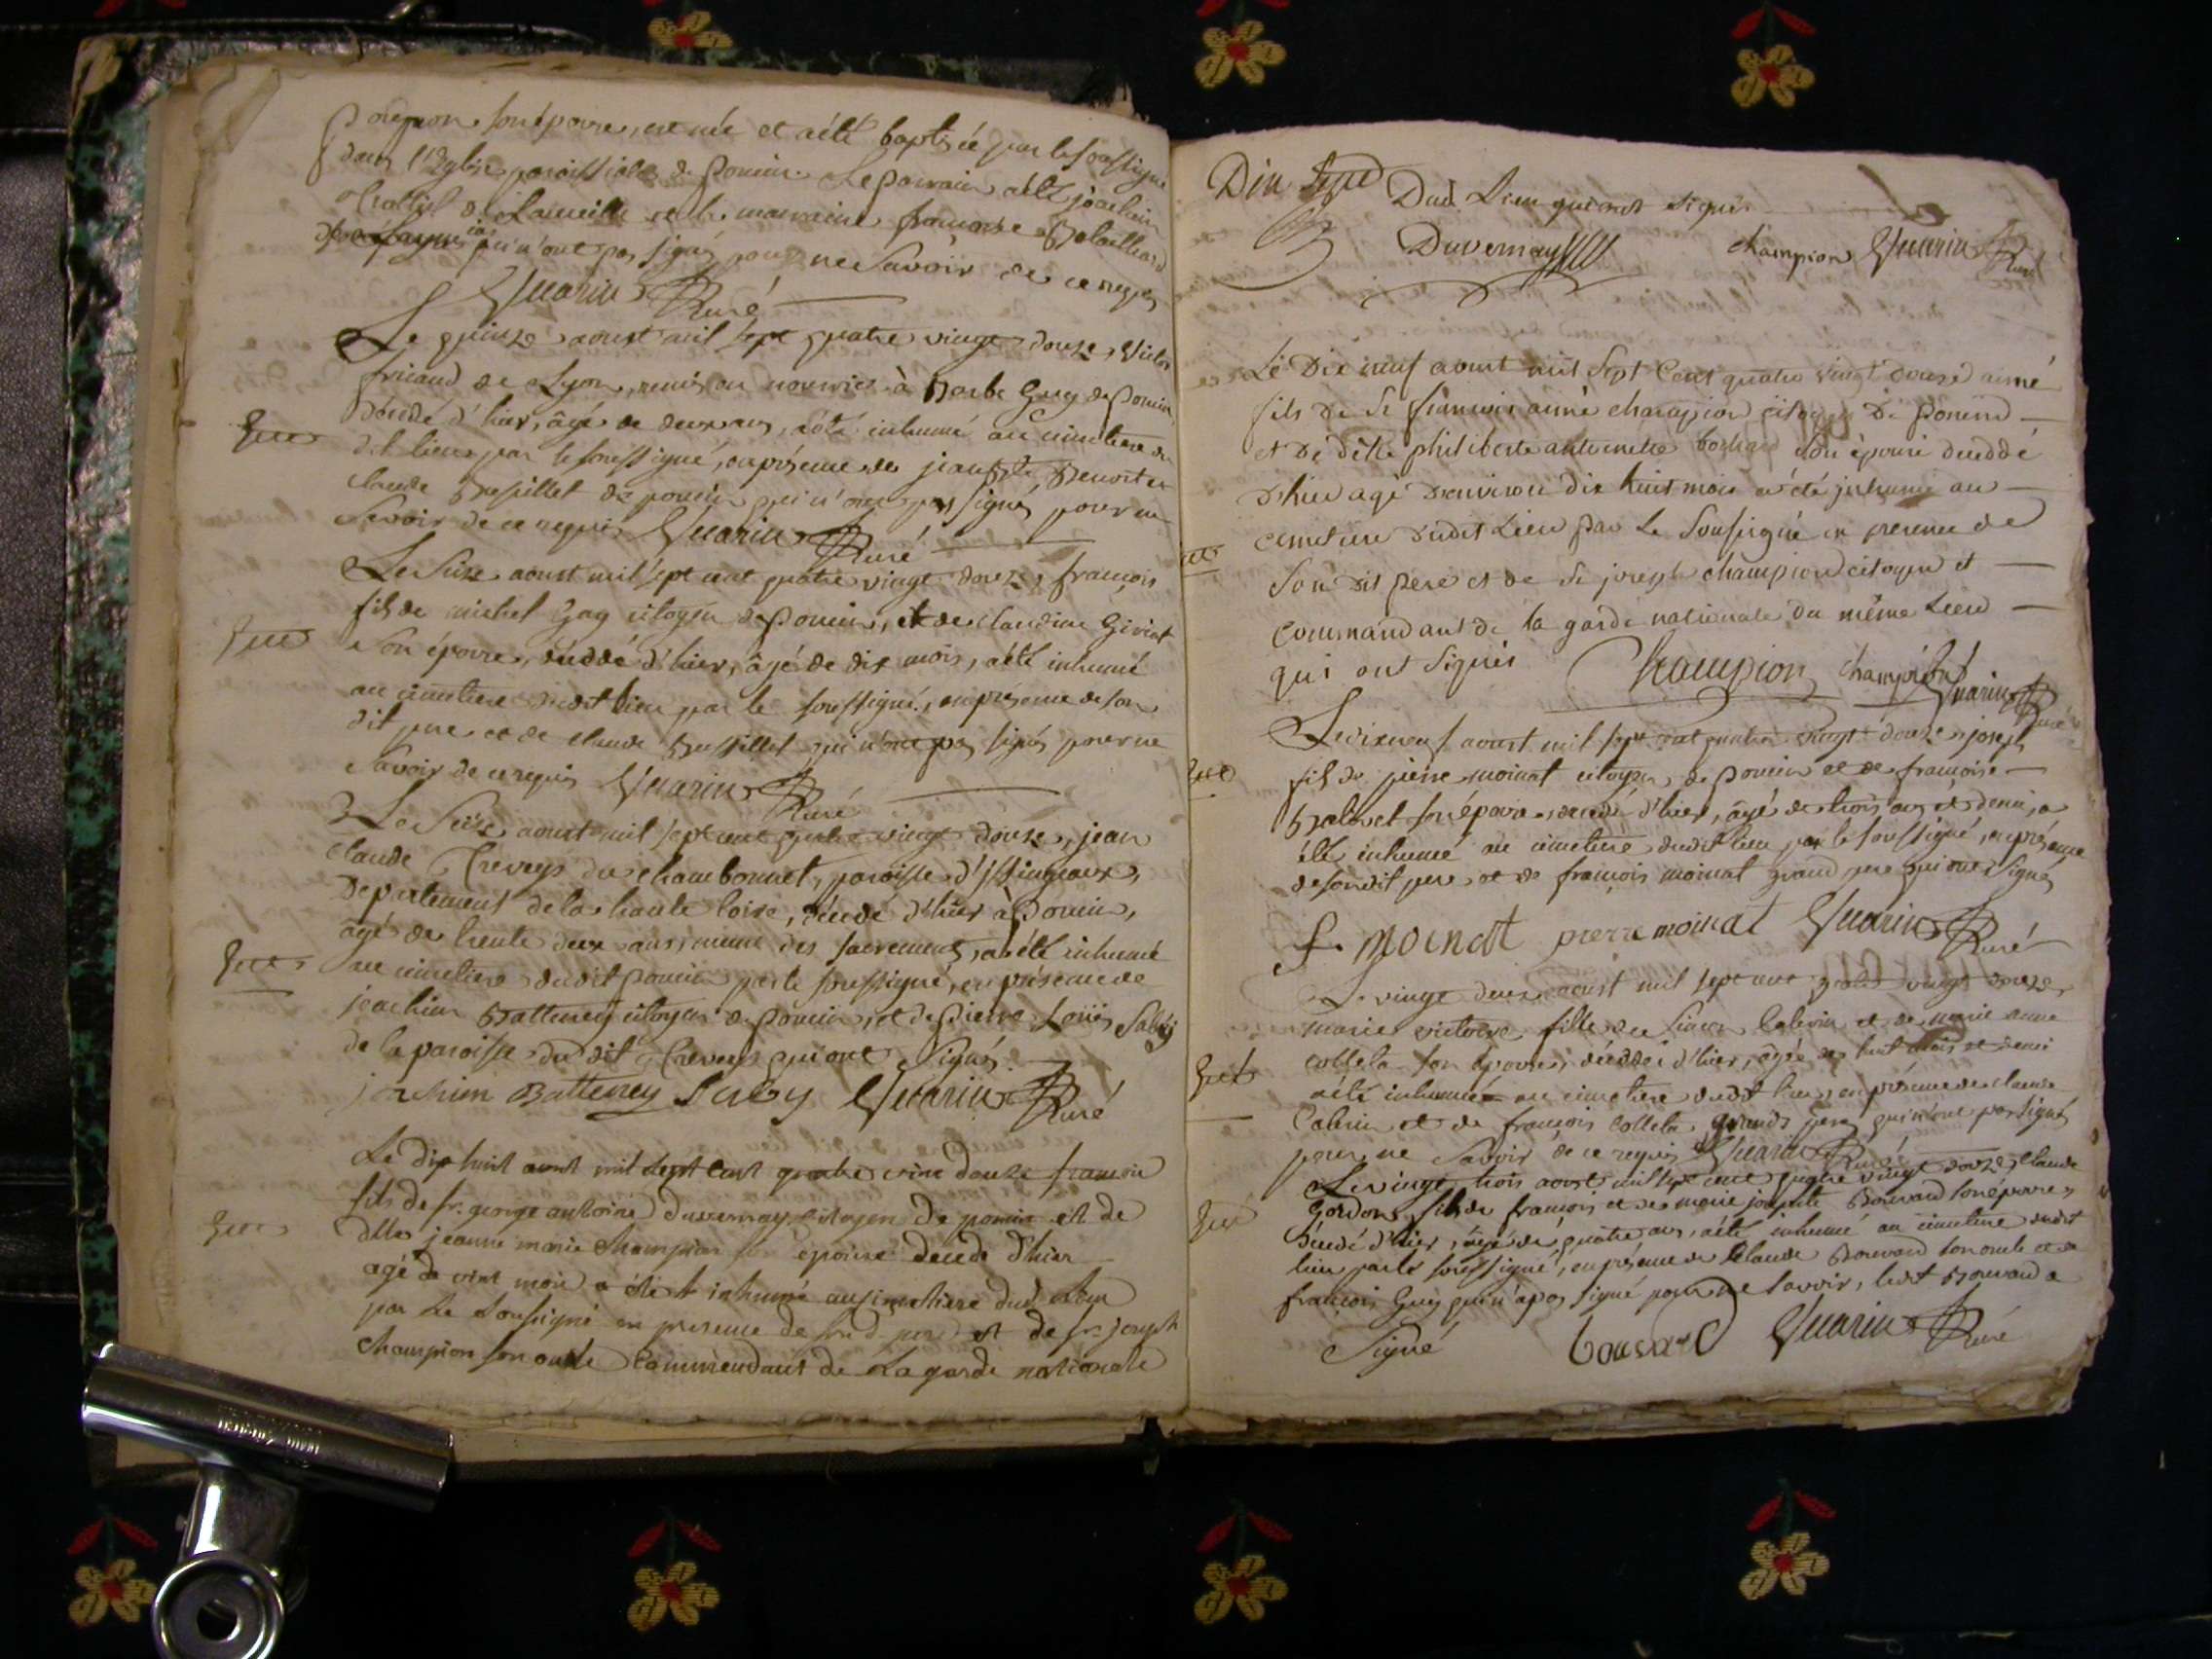 son épouse, est née et a été baptisée par le soussigné
dans l'Eglise paroissiale de Poncin. Le parrain a été joachim
de et la marraine françoise
qui n'ont pas signés pour ne savoir de ce requis
Guarin Curé
Le quinze aoust mil sept quatre vingt douze, victor
de Lyon, remis en nourrice à Barbe Guy de Poncin
décédé d'hier, âgé de deux ans, a été inhumé au cimetiere du
dit lieu par le soussigné, en présence de jean Bte Benoit et
claude de poncin qui n'ont pas signés pour ne
Savoir de ce requis Guarin Curé
Le Seize aoust mil sept cent quatre vingt douze, françois
fils de michel Guy citoyen de Poncin, et de claudine
son épouse, décédé d'hier, âgé de dix mois, a été inhumé
au cimetiere dudit lieu par le soussigné, en présence de son
dit pere et de claude qui n'ont pas signés pour ne
Savoir de ce requis Guarin Curé
Le Seize aoust mil sept cent quatre vingt douze, jean
claude Creveys du chambonnet, paroisse d'issingeaux,
departement de la haute loire, décédé d'hier à Poncin,
âgé de trente deux ans, muni des sacrements, a été inhumé
au cimetiere dudit Poncin par le soussigné, en présence de
joachim Batteney citoyen de Poncin, et de Pierre Louis Saby
de la paroisse du dit Creveys qui ont Signés
joachim Batteney Saby Guarin Curé
Le dix huit aout mil sept cent quatre vint douze francois
fils de sr. george antoine duvernay citoyen de poncin et de
dlle jeanne marie champion son epouse decede d'hier
agé de vint mois a été inhumé au simetiere dud. lieu
par le soussigné en presence de sond. pere et de sr. joseph
champion son oncle commendant de la garde nationale
Dud. Lieu qui ont signés
Duvernay champion Guarin Curé
Le Dix neuf aout mil sept cent quatre vingt douze aimé
fils de Sr françois aimé champion citoyen de poncin
et de delle philiberte antoinette bochard son épouse decedé
d'hier agé d'environ dix huit mois a été inhumé au
cimetiere dudit Lieu par le soussigné en presence de
Son dit pere et de Sr joseph champion citoyen et
commandant de la garde nationale du même Lieu
qui ont signés Champion champion Guarin Curé
Le dix neuf aoust mil sept cent quatre vingt douze, joseph
fils de pierre moinat citoyen de Poncin et de françoise
son épouse, décédé d'hier, âgé de trois ans et demi, a
été inhumé au cimetiere dudit lieu par le soussigné, en présence
de son dit pere, et de françois moinat grand pere qui ont Signés
f. moinat pierre moinat Guarin Curé
Le vingt deux aoust mil sept cent quatre vingt douze,
marie victoire fille de Simon Caterin et de marie anne
colleta son épouse, décédée d'hier, âgée de huit mois et demi
a été inhumée au cimetiere dudit lieu, en présence de claude
Caterin et de françois colleta grands peres qui n'ont pas signés
pour ne Savoir de ce requis Guarin Curé
Le vingt trois aoust mil sept cent quatre vingt douze, claude
Gordon, fils de françois et de marie josephte Bouvard son épouse,
décédé d'hier, âgé de quatre ans, a été inhumé au cimetiere dudit
lieu par le soussigné, en présence de Claude Bouvard son oncle et de
françois Guy qui n'a pas signé pour ne savoir, ledit Bouvard a
Signé bouvard Guarin Curé